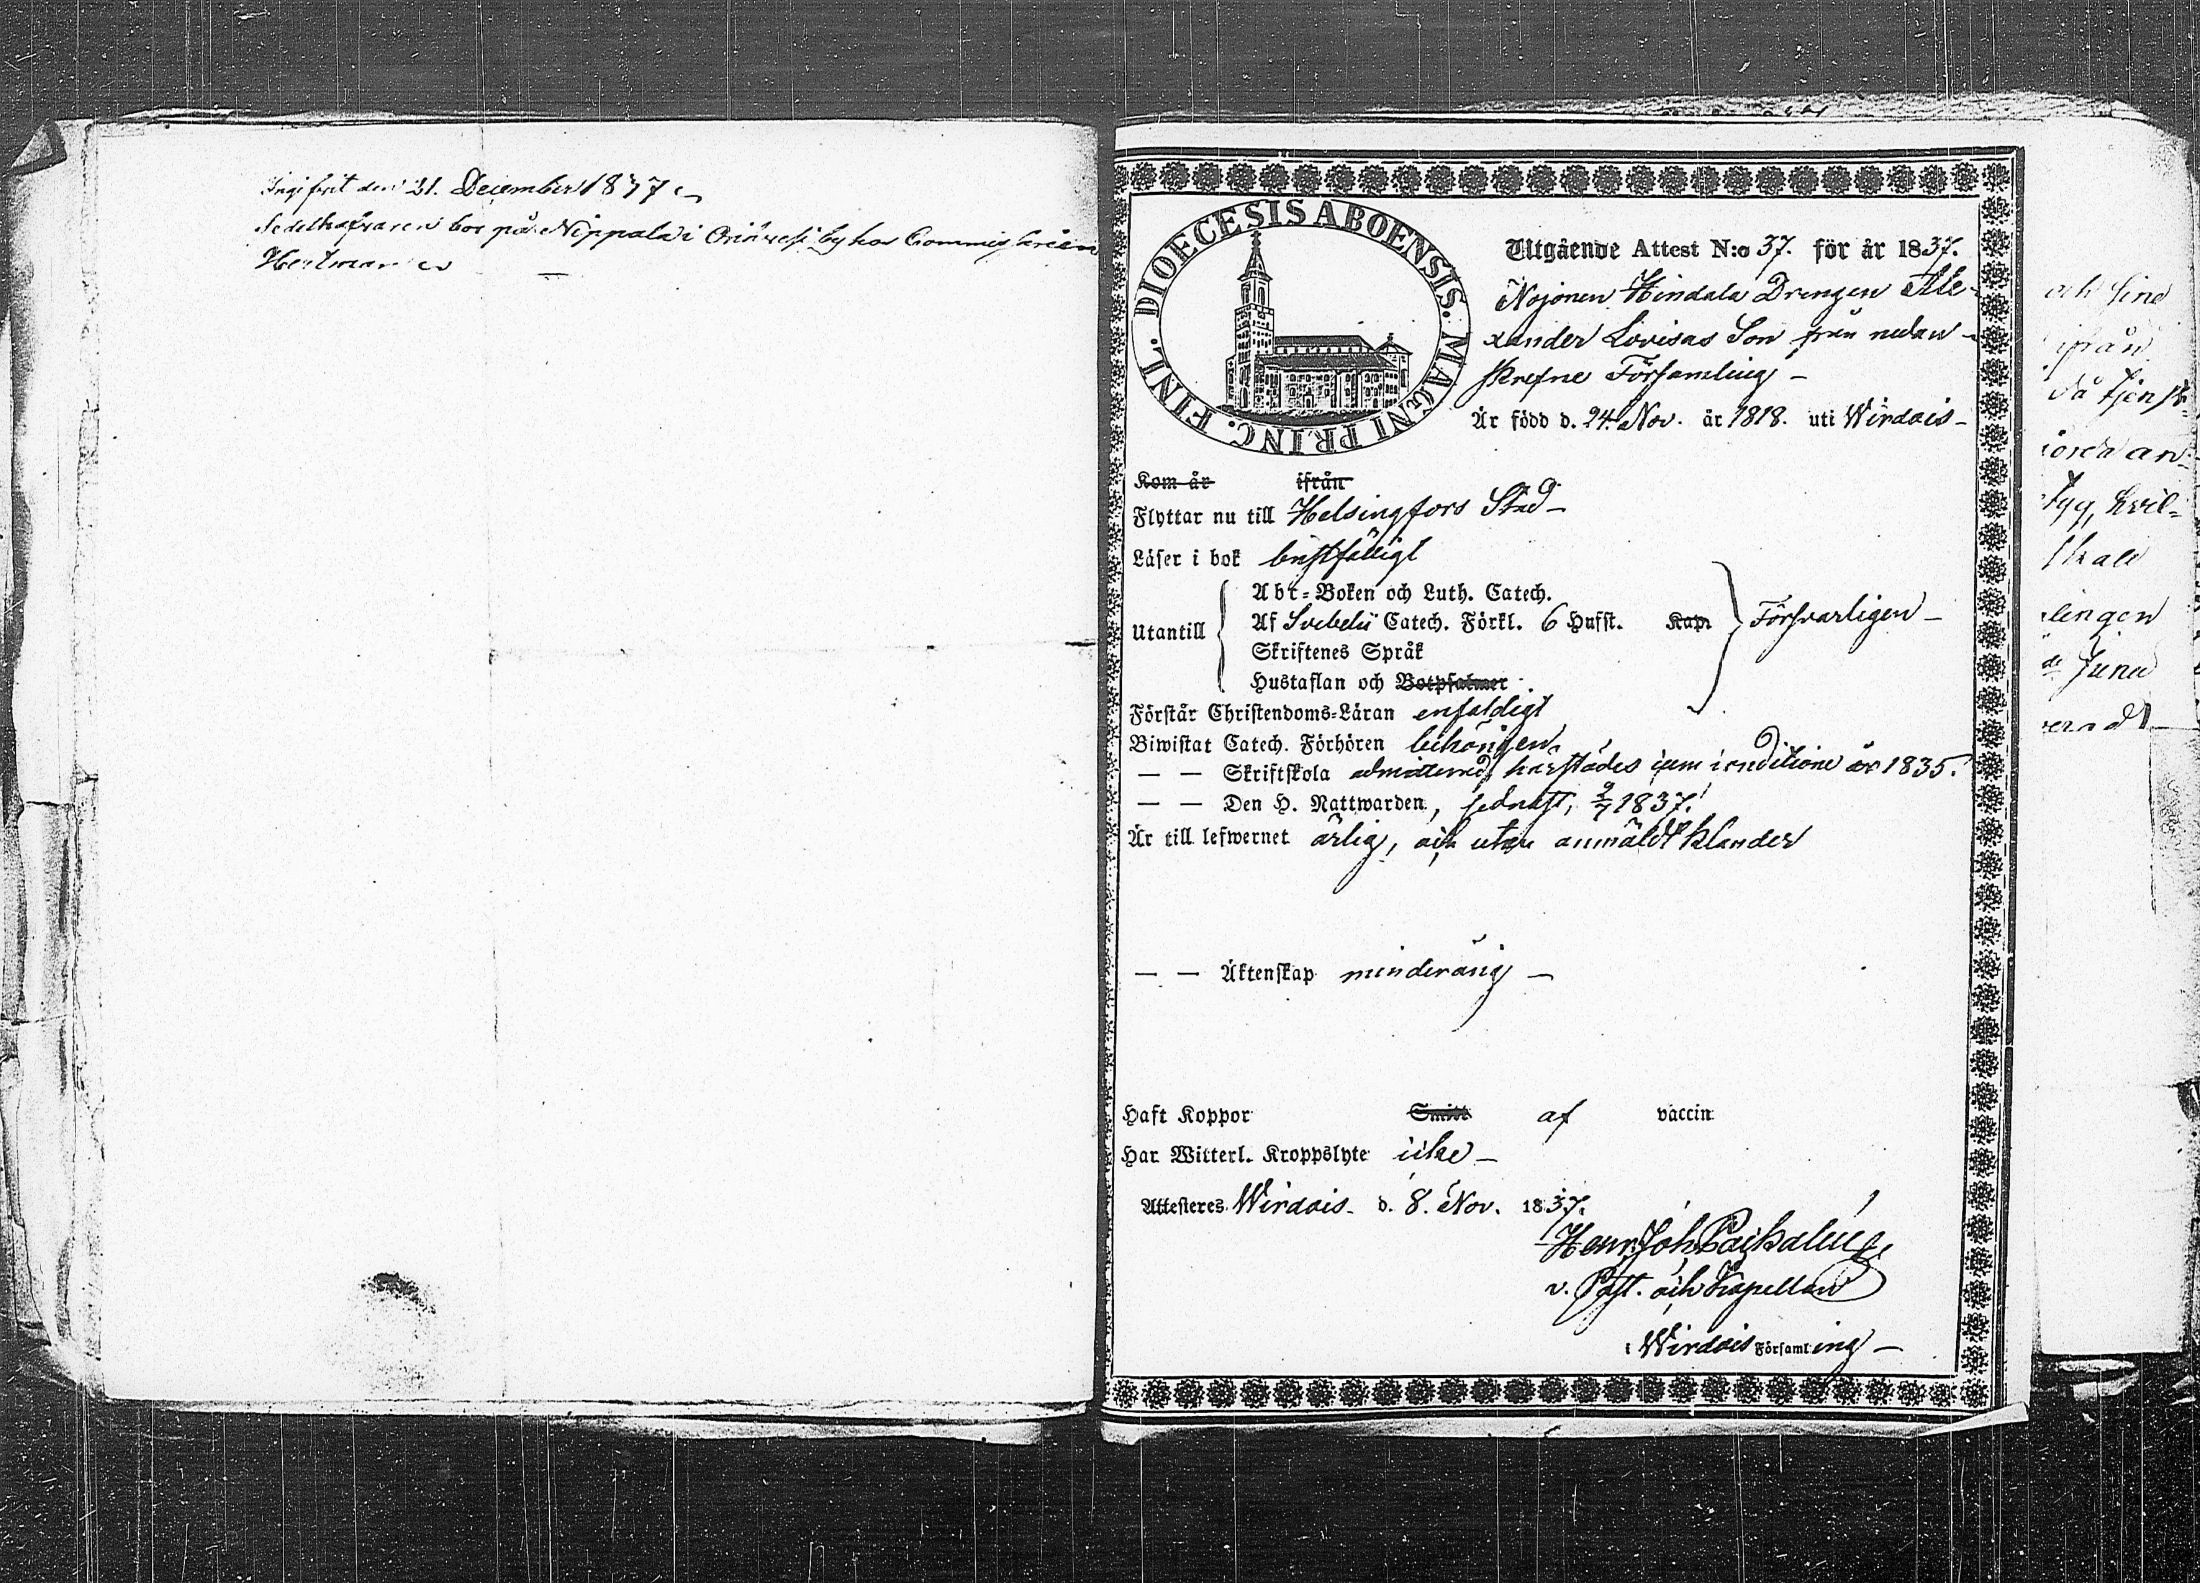 Ingifvit den 21. December 1837.
Sedelhafvaren bor på Nippala i Orihvesi by hos Commissarien
Hertman
DIOECESIS ABOENSIS. MAGNI PRINC. FINL.
Utgående Attest N:o 37. för år 1837.
Nojonen Hindala Drengen Ale-
xander Lovisas Son från nedan-
skrefne Församling –
Är född d. 24. Nov. år 1818. uti Wirdois –
Kom år ifrån
Flyttar nu till Helsingfors Stad –
Läser i bok bristfälligt
Utantill
Abc-Boken och Luth. Catech.
Af Svebelii Catech. Förkl. 6 Hufst. Kap.
Skriftenes Språk
Hustaflan och Botpsalmer
Försvarligen –
Förstår Christendoms-Läran enfaldigt
Biwistat Catech. Förhören behörigen.
— — Skriftskola admitterad härstädes cum conditione år 1835.
— — Den H. Nattwarden, sednast, 2/7 1837.
Är till lefwernet ärlig, och utan anmäldt klander
— — Äktenskap minderårig –
Haft Koppor Smitt af vaccin
Har Witterl. Kroppslyte icke –
Attesteres Wirdois. d. 8. Nov. 1837.
Henr. Joh.
v. Past. och Kapellan
i Wirdois Församling –
och sine
ifrån
då tjenst-
an-
tyg, hvil-
skall
lingen
de Junii